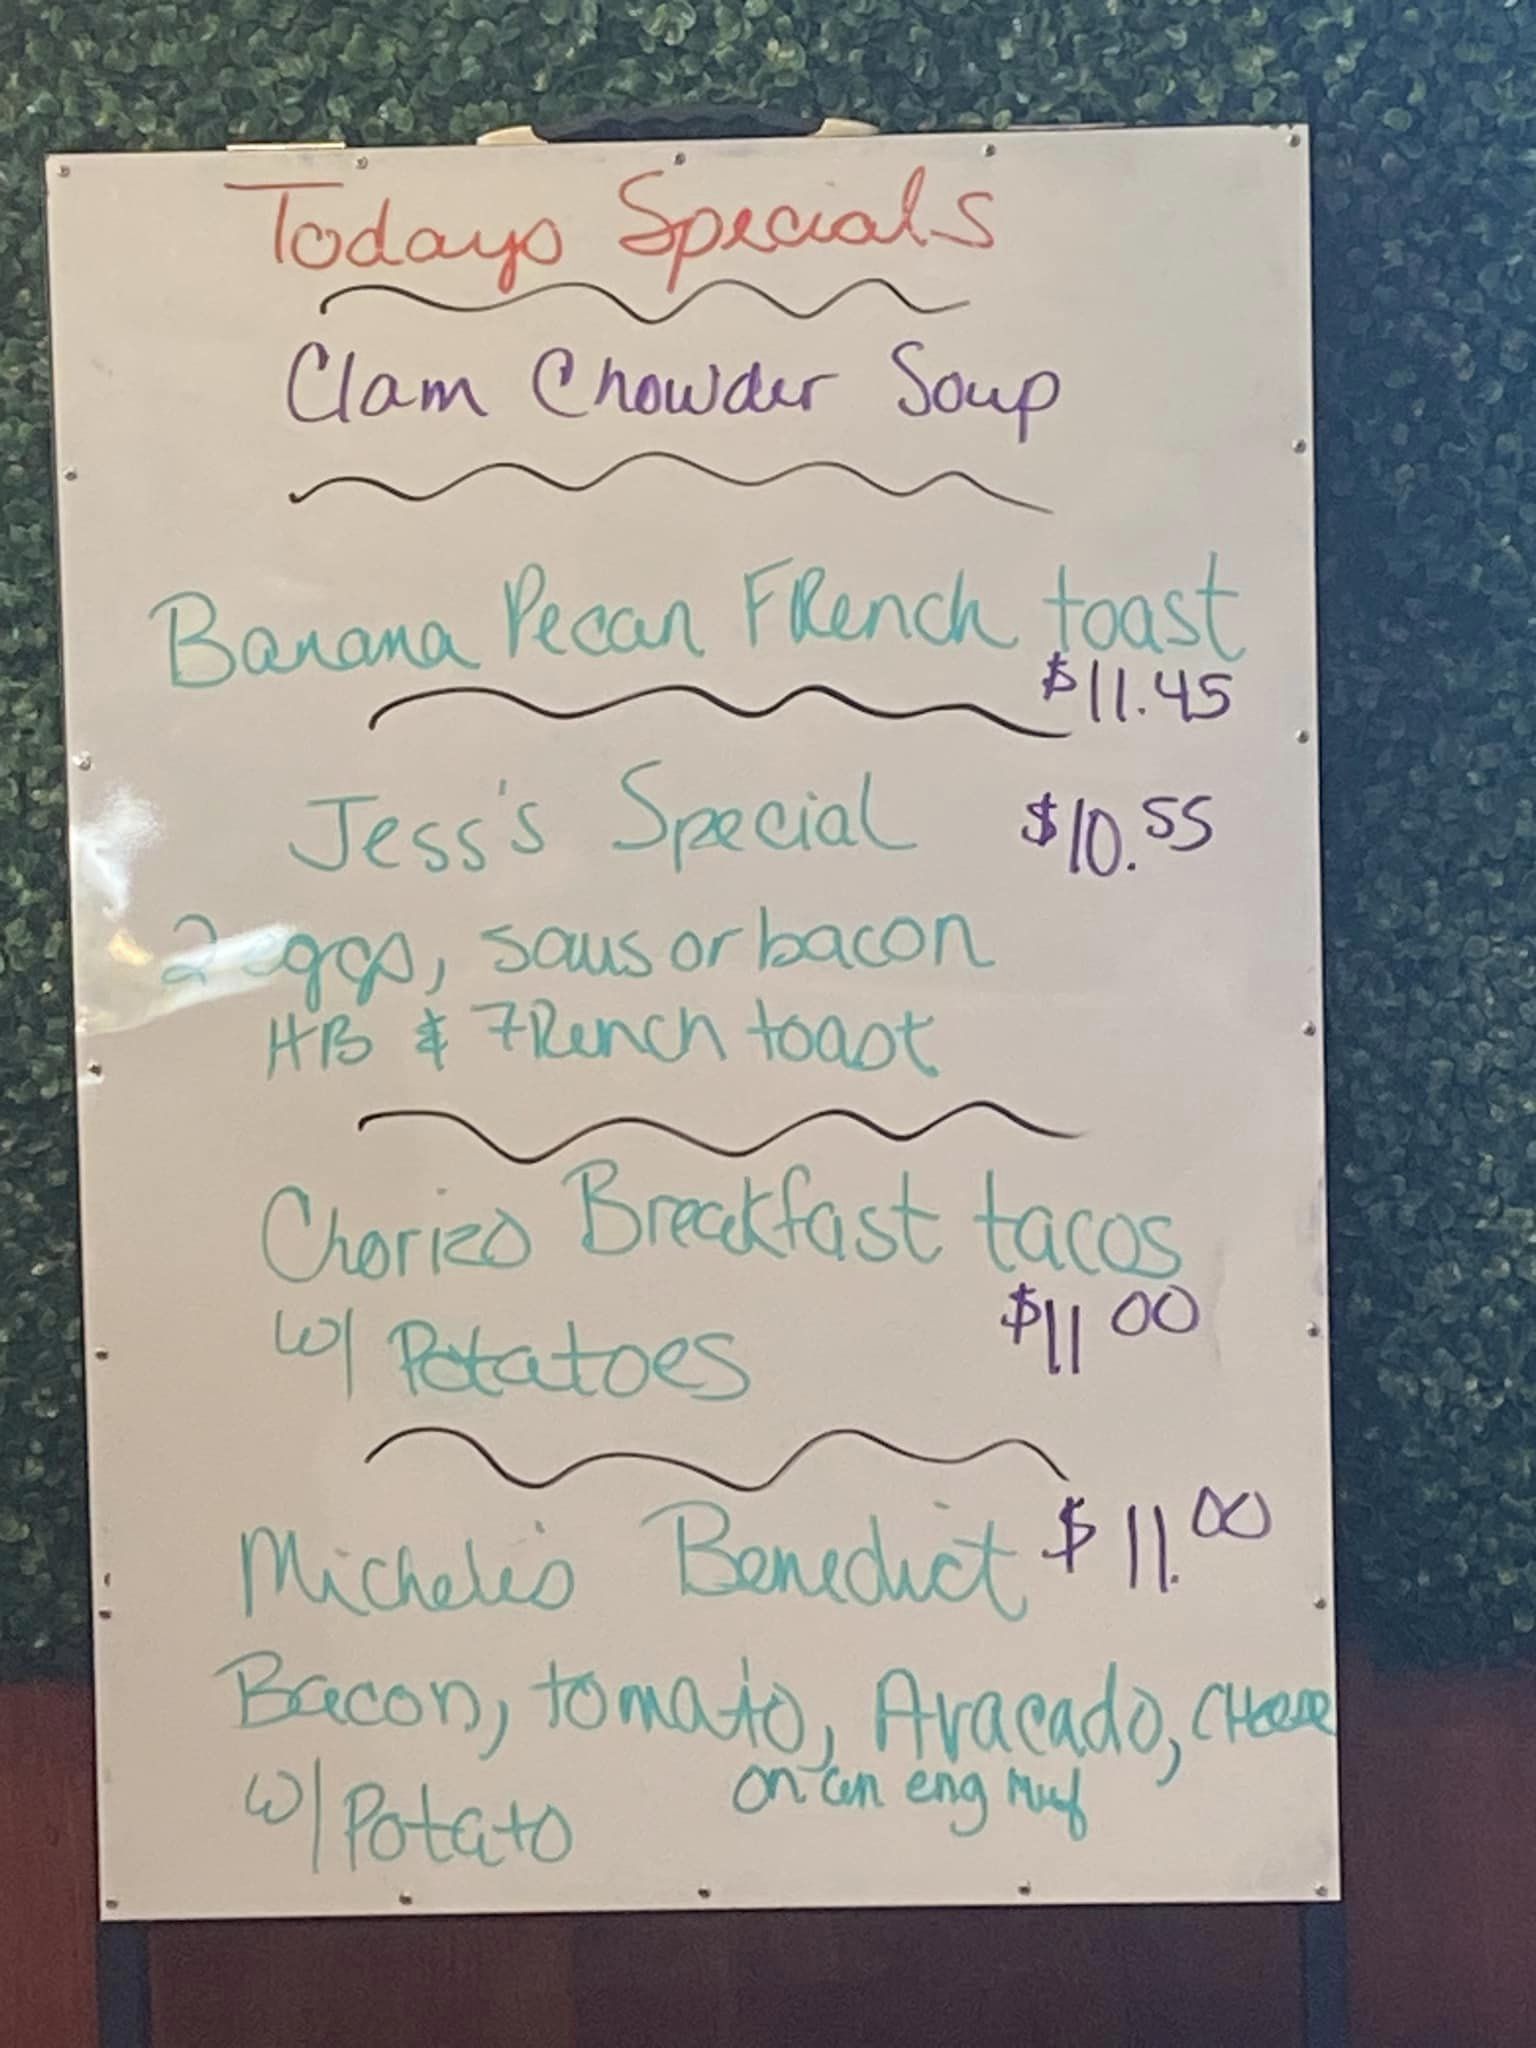 Todays Specials
Clam Chowder Soup
Banana Pecan FRench toast
$11.45
Jess's Special $10.55
2 eggs, saus or bacon
HB & FRench toast
Chorizo Breakfast tacos
w/ Potatoes $11 00
Michelės Benedict $11.00
Bacon, tomato, Avacado, CHeese
w/ Potato on an eng Muf